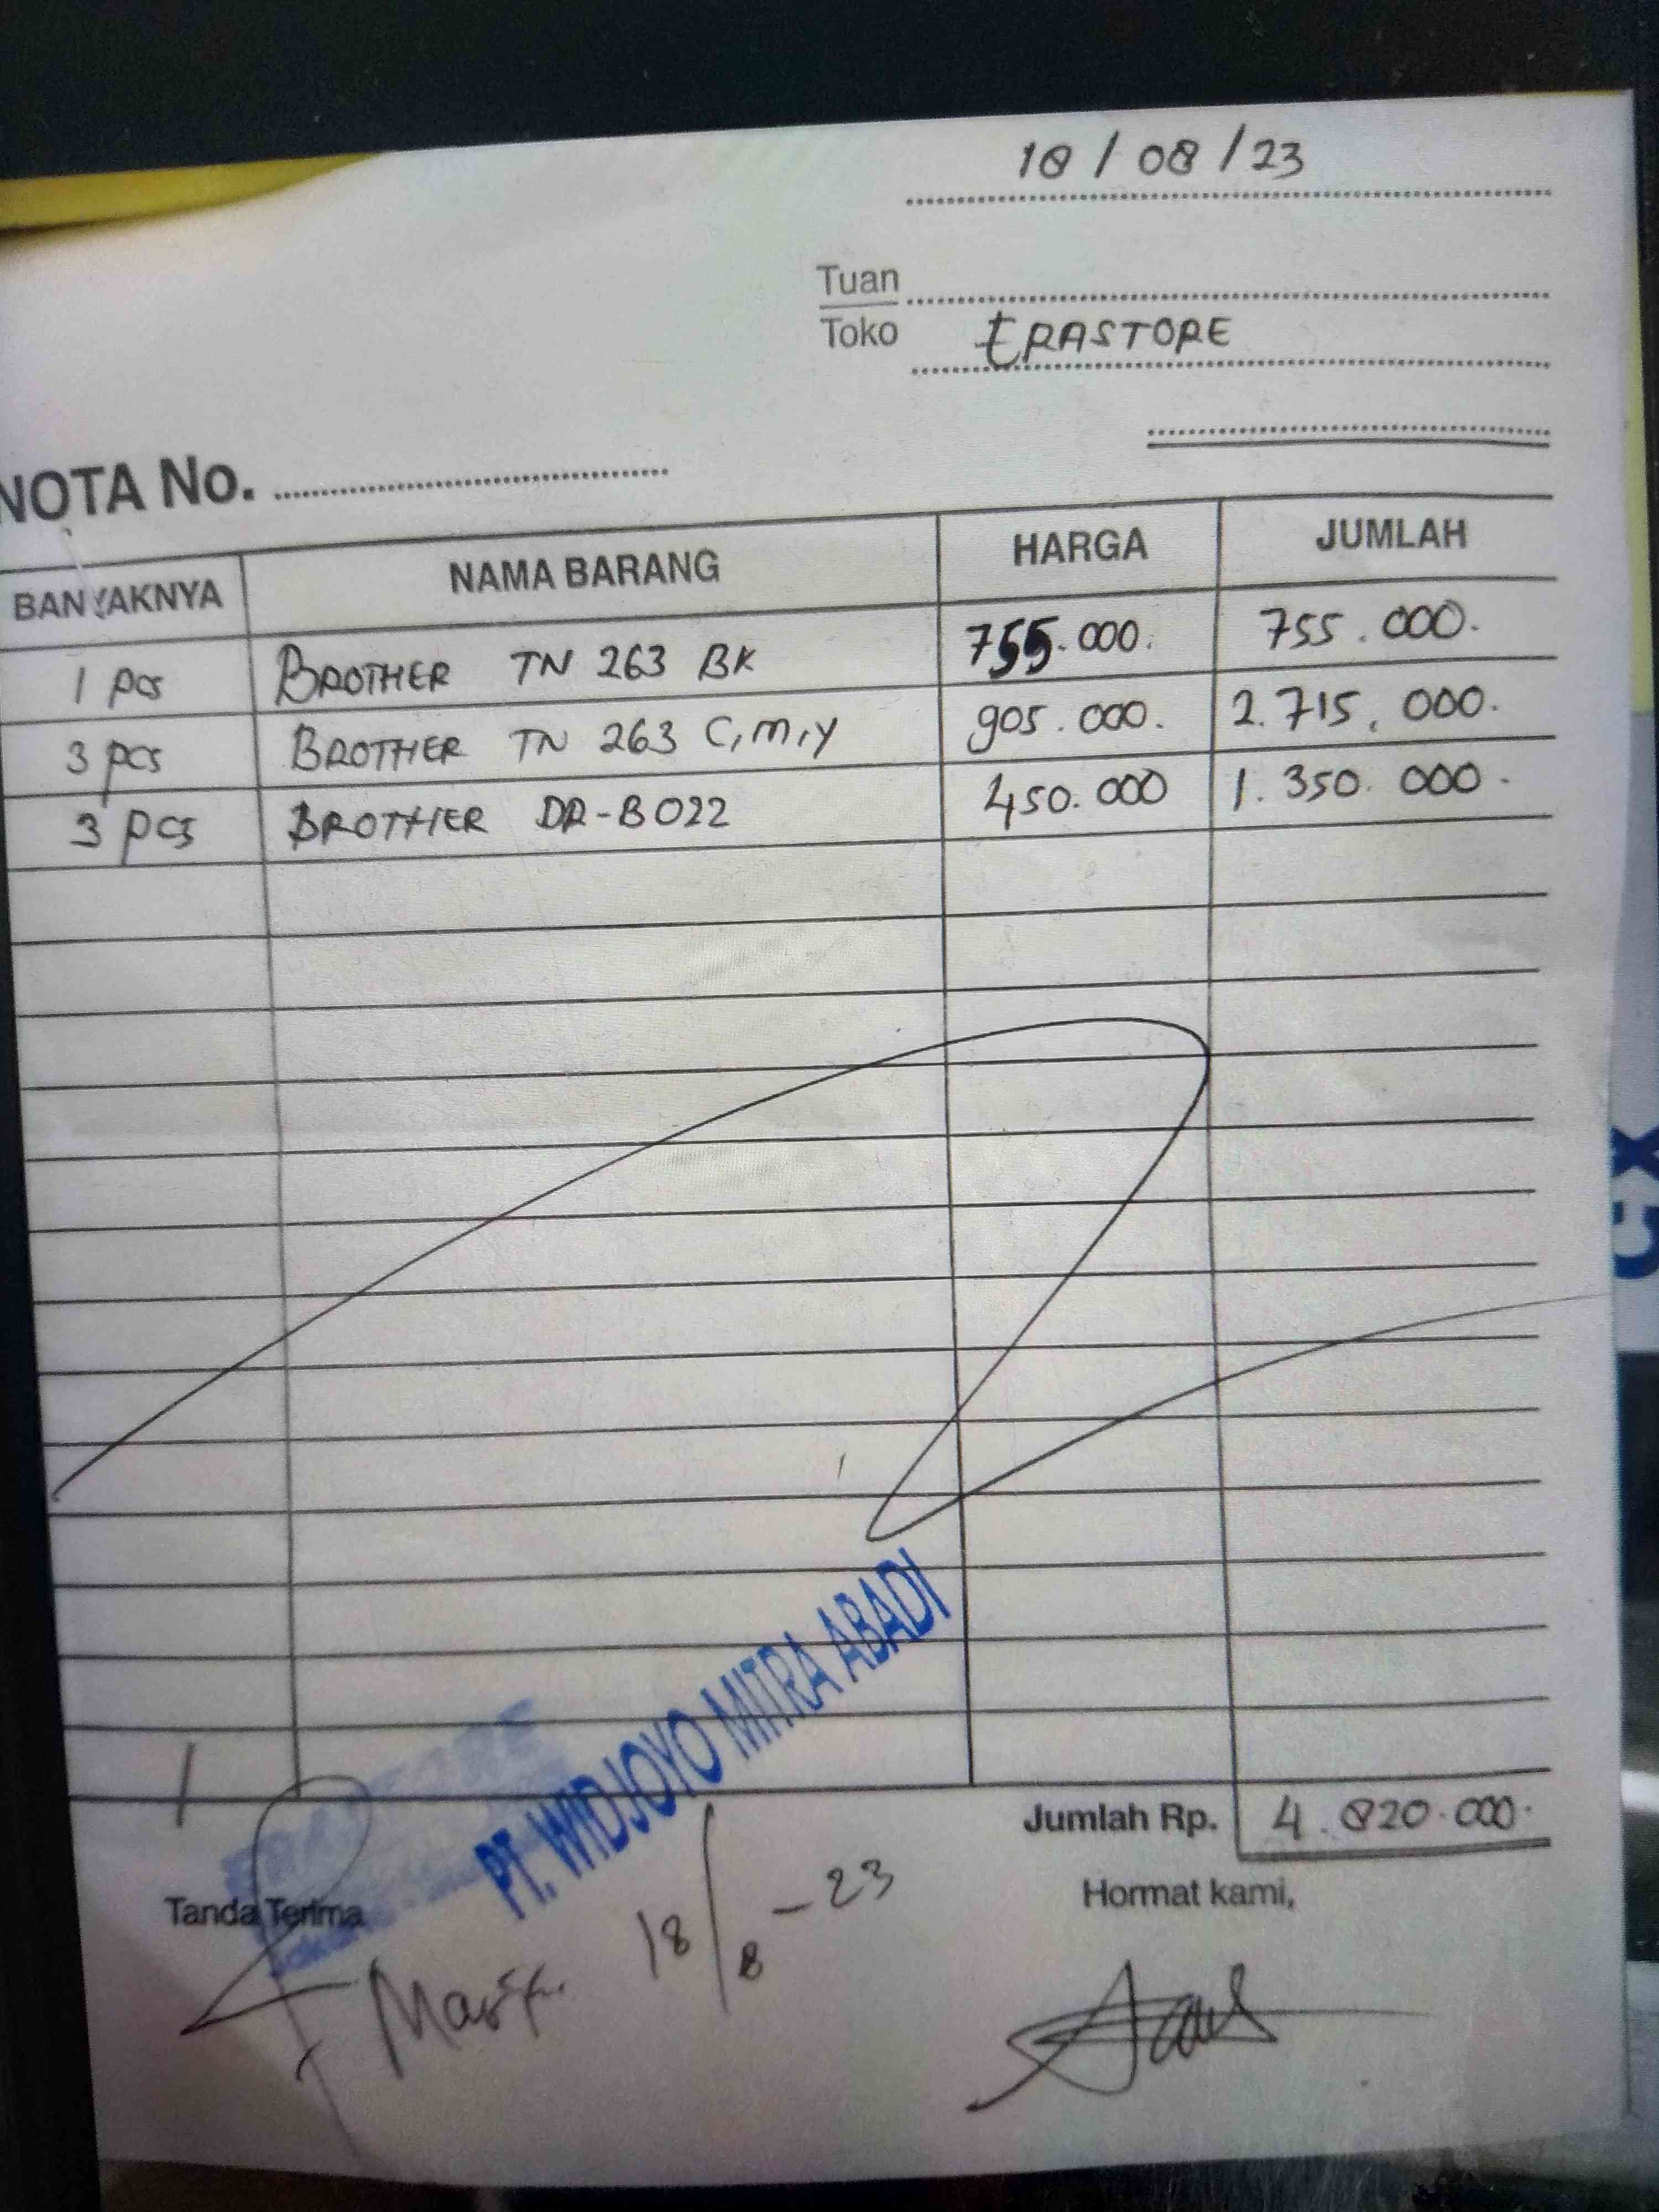 18 / 08 / 23
Tuan
Toko ERASTORE
NOTA No.
BANYAKNYA NAMA BARANG HARGA JUMLAH
1 pcs BROTHER TN 263 BK 755.000. 755.000.
3 pcs BROTHER TN 263 C,M,Y 905.000. 2.715.000.
3 pcs BROTHER DR-B022 450.000 1.350.000.
PT. WIDJOYO MITRA ABADI
Jumlah Rp. 4.820.000.
Tanda Terima Hormat kami,
18/8-23
CX